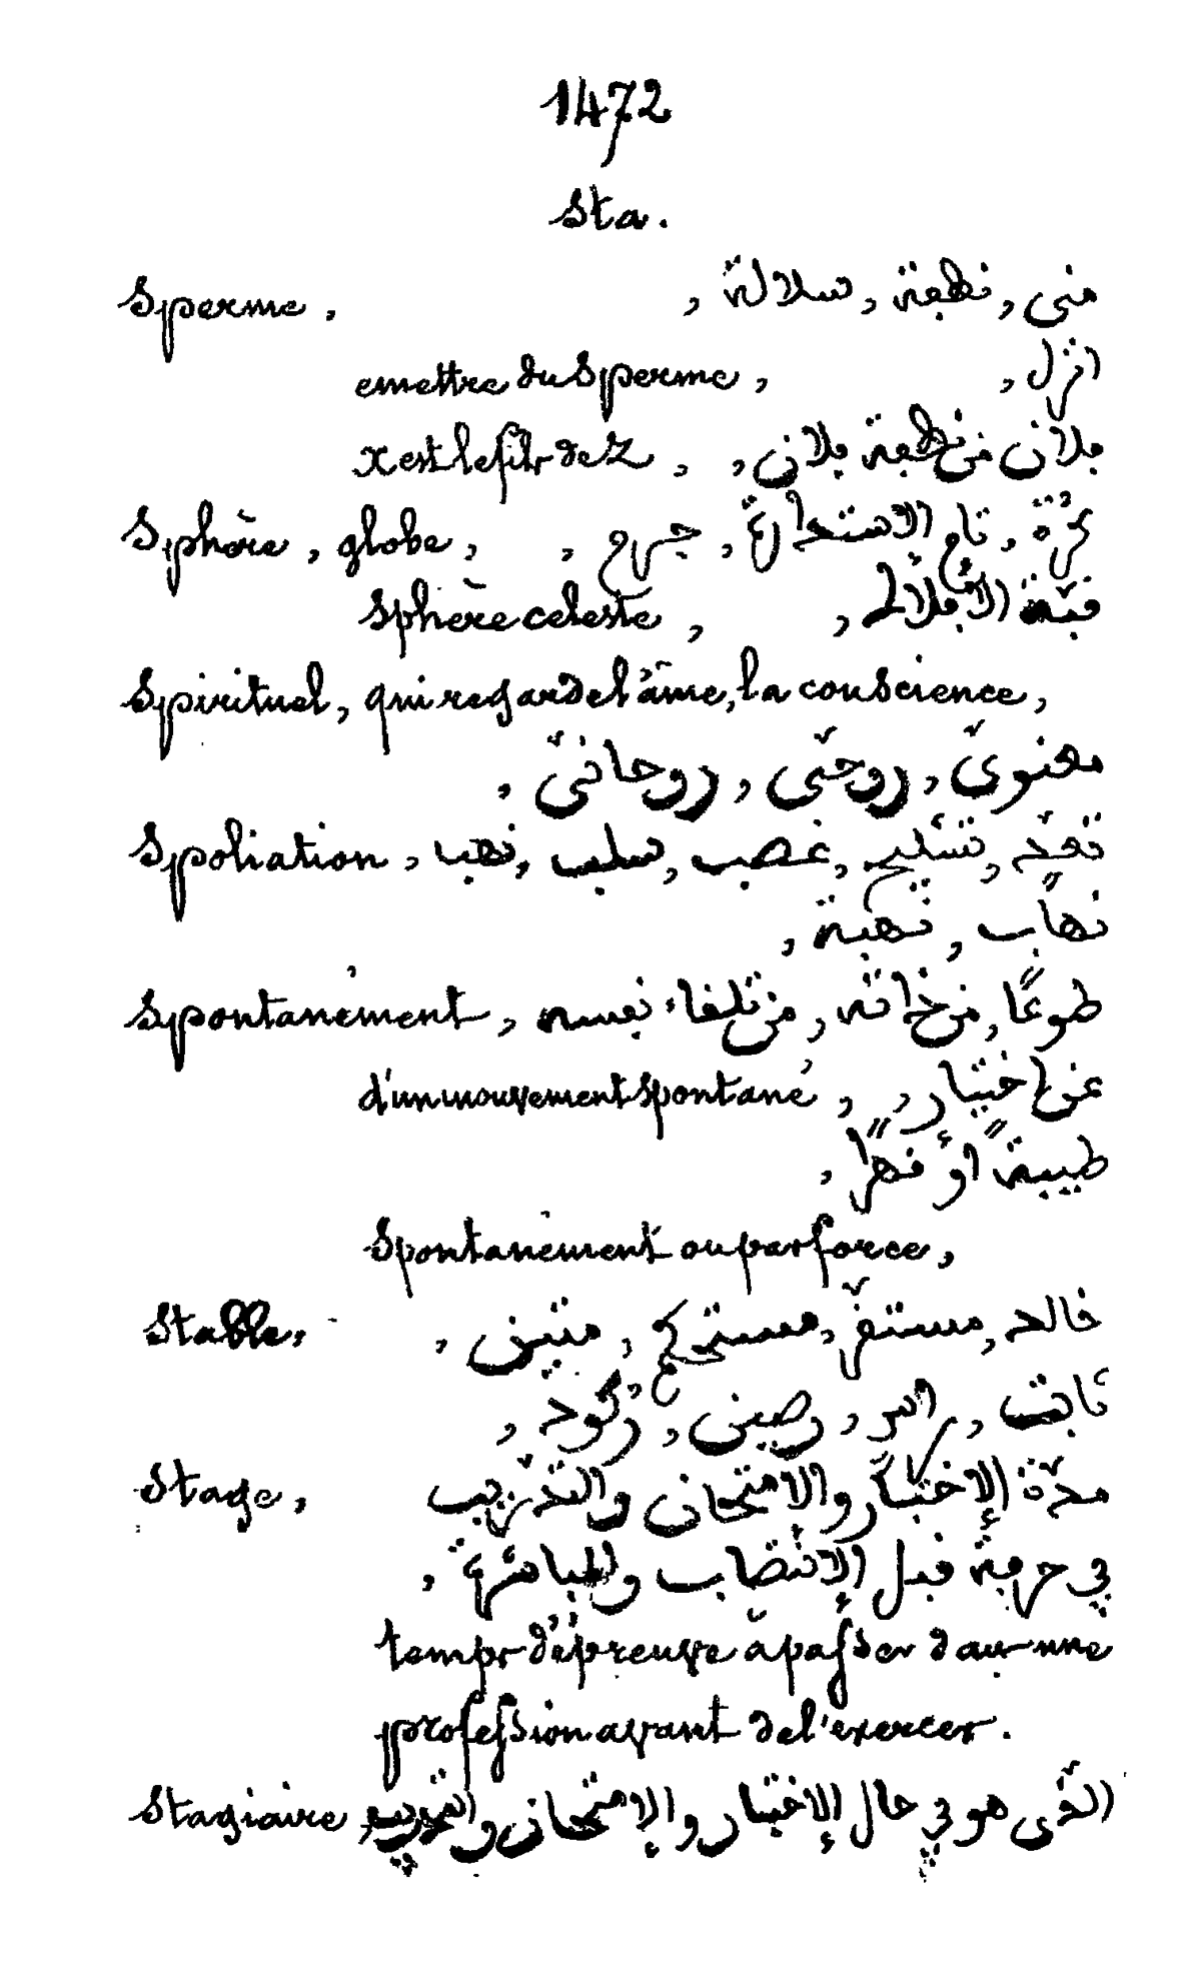 1472
Sta.
Sperme, منى, نطفة, سلالة,
emettre du Sperme, انزل,
X est le fils de Z, فلان من نطفة فلان,
Sphère, globe, كُرَة, تام الاستدارة,
Sphère celeste, قبّة الأفلاك,
Spirituel, qui regarde l'âme, la conscience,
معنويّ, روحّى, روحانىّ,
Spoliation, تعدٍّ, تشليح, غصب, سلب, نهب,
نهاب, نهبة,
Spontanément, طوعًا, من ذاته, من تلقاء نفسه,
d'un mouvement spontané, عن اختيار,
طيبةً أو قهرًا,
Spontanément ou par force,
Stable, خالد, مستقرّ, مستحكم, متين,
ثابت, راس, رصين, ركود,
Stage, مدّة الإختبار والامتحان والتدريب
في حرفة قبل الإنتصاب والمباشرة,
temps d'épreuve à passer dans une
profession avant de l'exercer.
Stagiaire, الذّى هو في حال الإختبار والإمتحان والتدريب